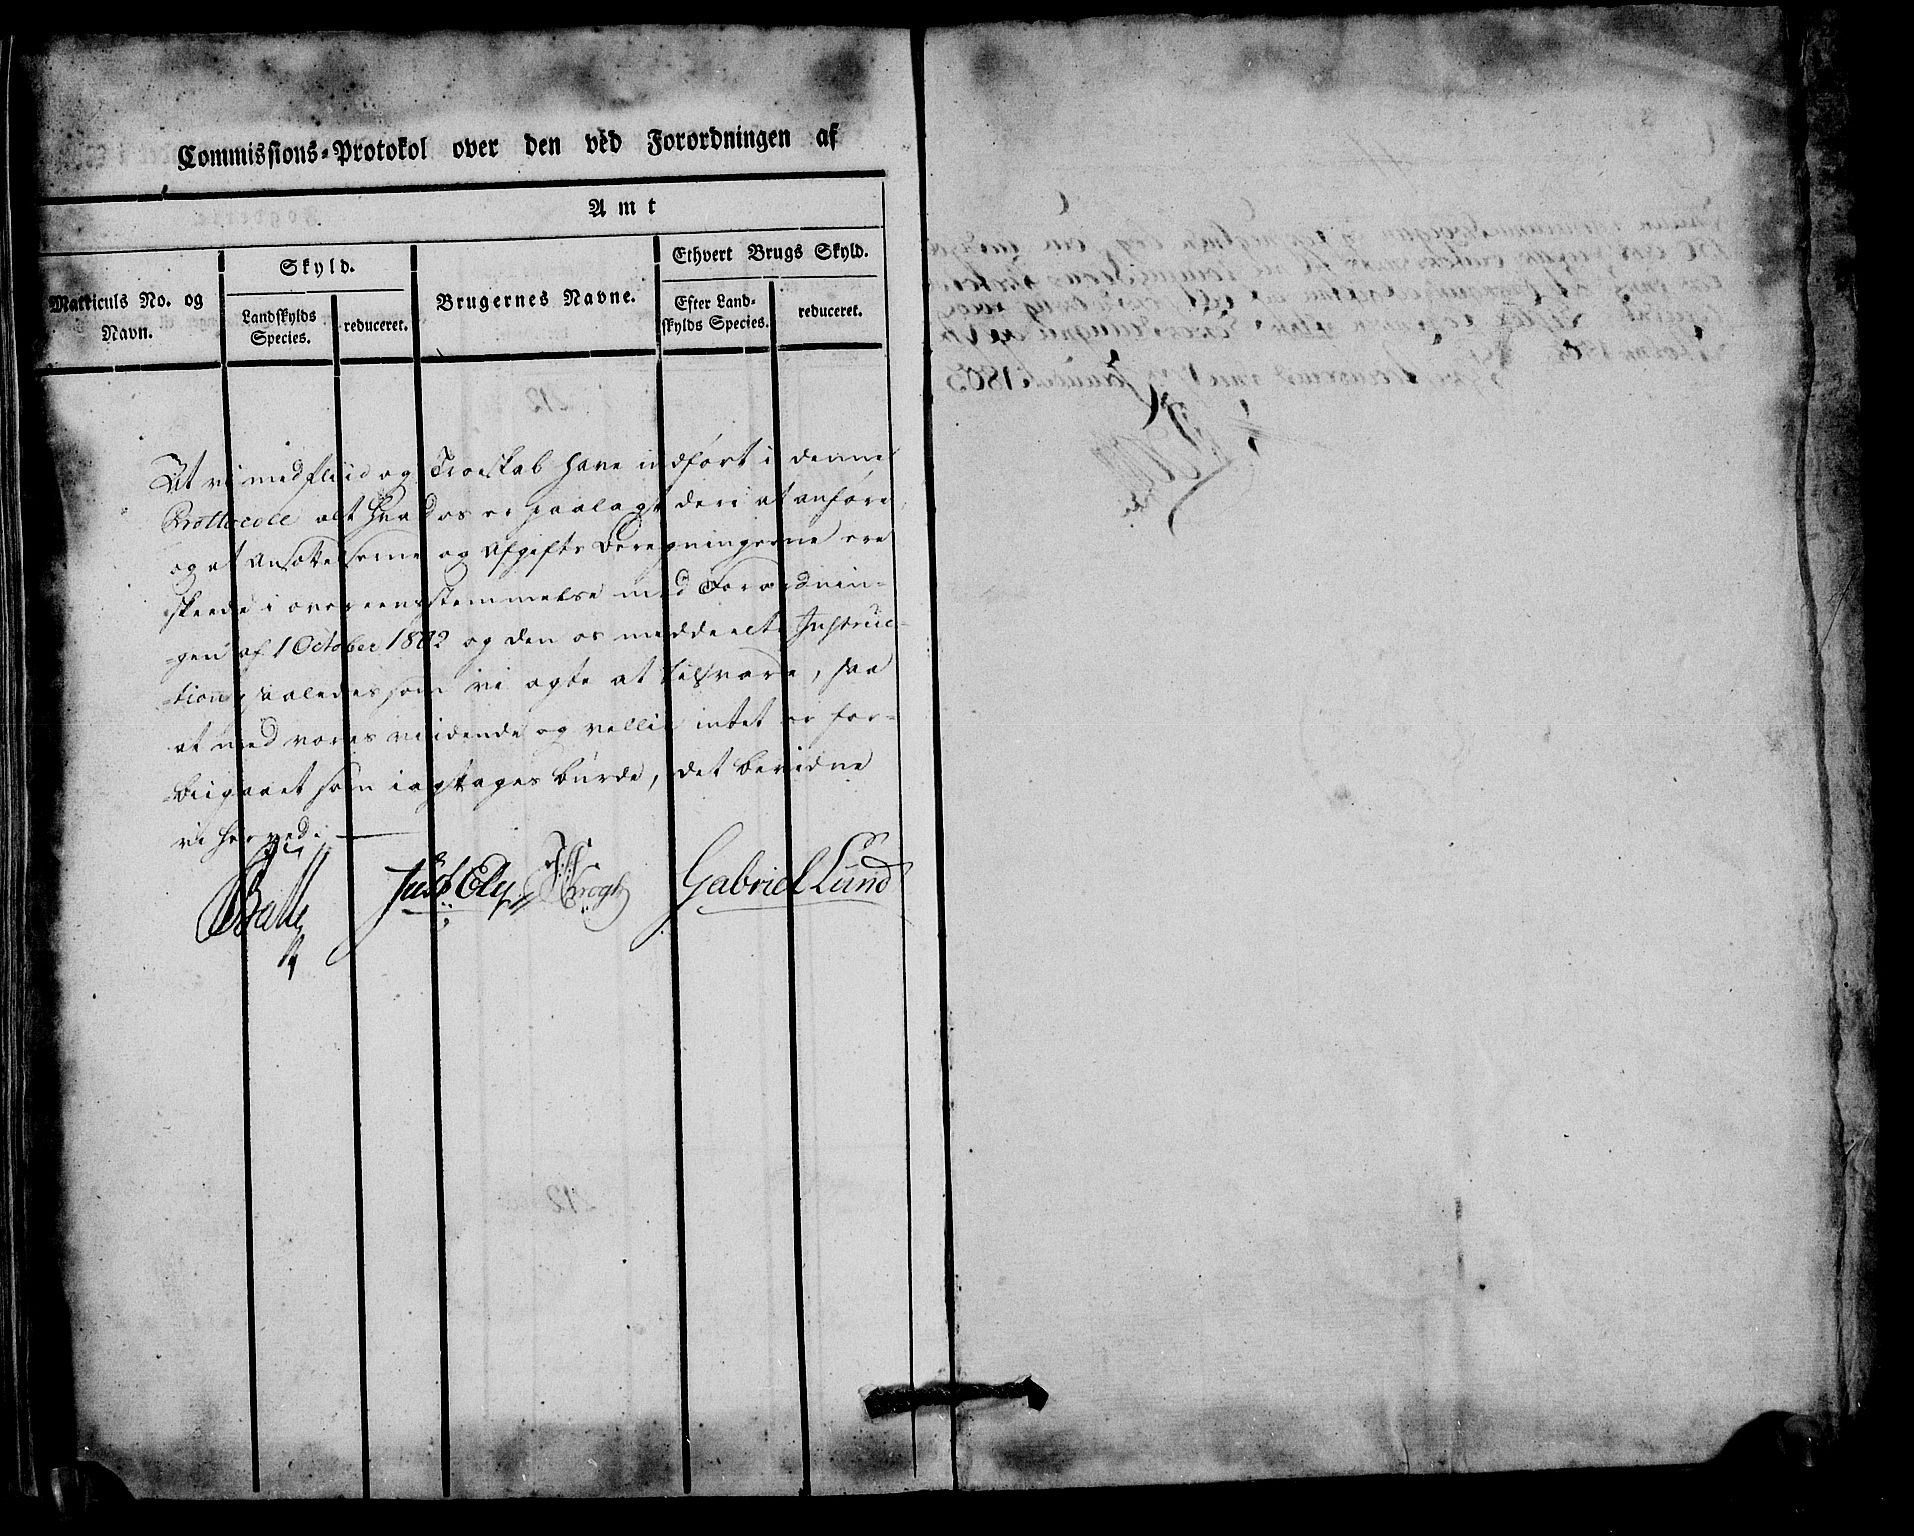 Commissions-Protokol over den ved Forordningen af
Amt
Matriculs No. og Navn.
Skyld.
Landskylds Species.
reduceret.
Brugernes Navne.
Ethvert Brugs Skyld.
Efter Landskylds Species.
reduceret.
At vi med fliid og Troeskab have indført i denne
Prottocoll alt hvad os er paalagt deri at anføre
og at Ansættelserne og Afgifts Beregningerne ere
skeede i overeensstemmelse med Forordnin-
-gen af 1 October 1802 og den os meddeelte Instruc-
-tion, saaledes som vi agte at tilsvare, saa
at med vores vidende og villie intet er for-
-biigaaet som iagttages burde, det bevidne
vi herved. —
Just Ely
Krogh
Gabriel Lund